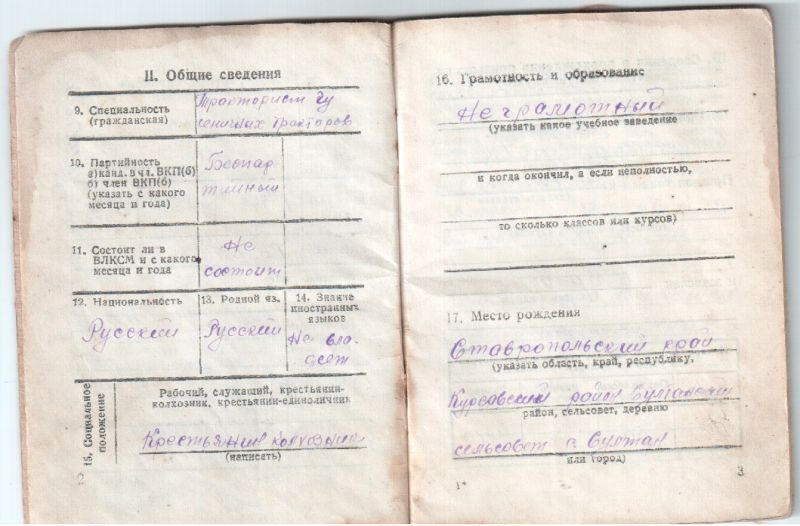 II. Общие сведения
9. Специальность
(гражданская)
Тракторист гу
сеничных тракторов
10. Партийность
а) канд. в чл. ВКП(б)
б) член ВКП(б)
(указать с какого
месяца и года)
Беспар
тийный
11. Состоит ли в
ВЛКСМ и с какого
месяца и года
Не
состоит
12. Национальность
Русский
13. Родной яз.
Русский
14. Знание
иностранных
языков
Не вла-
деет
15. Социальное
положение
Рабочий, служащий, крестьянин-
колхозник, крестьянин-единоличник
Крестьянин колхозник
(написать)
16. Грамотность и образование
Не грамотный
(указать какое учебное заведение
и когда окончил, а если неполностью,
то сколько классов или курсов)
17. Место рождения
Ставропольский край
(указать область, край, республику,
Курсавский район Султанский
район, сельсовет, деревню
сельсовет с. Султан
или город)
1*
3